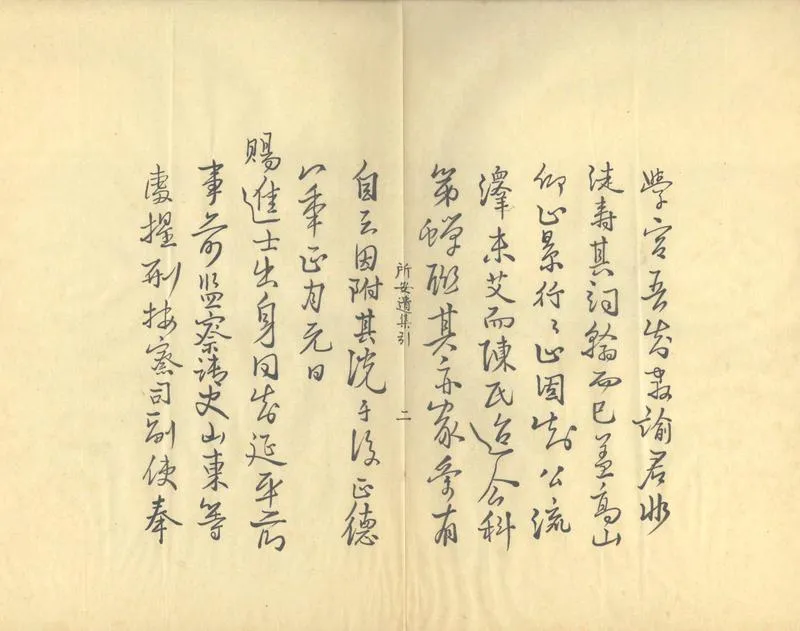 學宮吾知教諭君非
徒壽其詞翰而已蓋高山
仰止景行〻止因知公流
澤未艾而陳氏迨今科
第蟬聯其亦家學有
所安遺集引
二
自云因附其説于後正德
八年正月元日
賜進士出身同知延平府
事前監察御史山東等
處提刑按察司副使奉